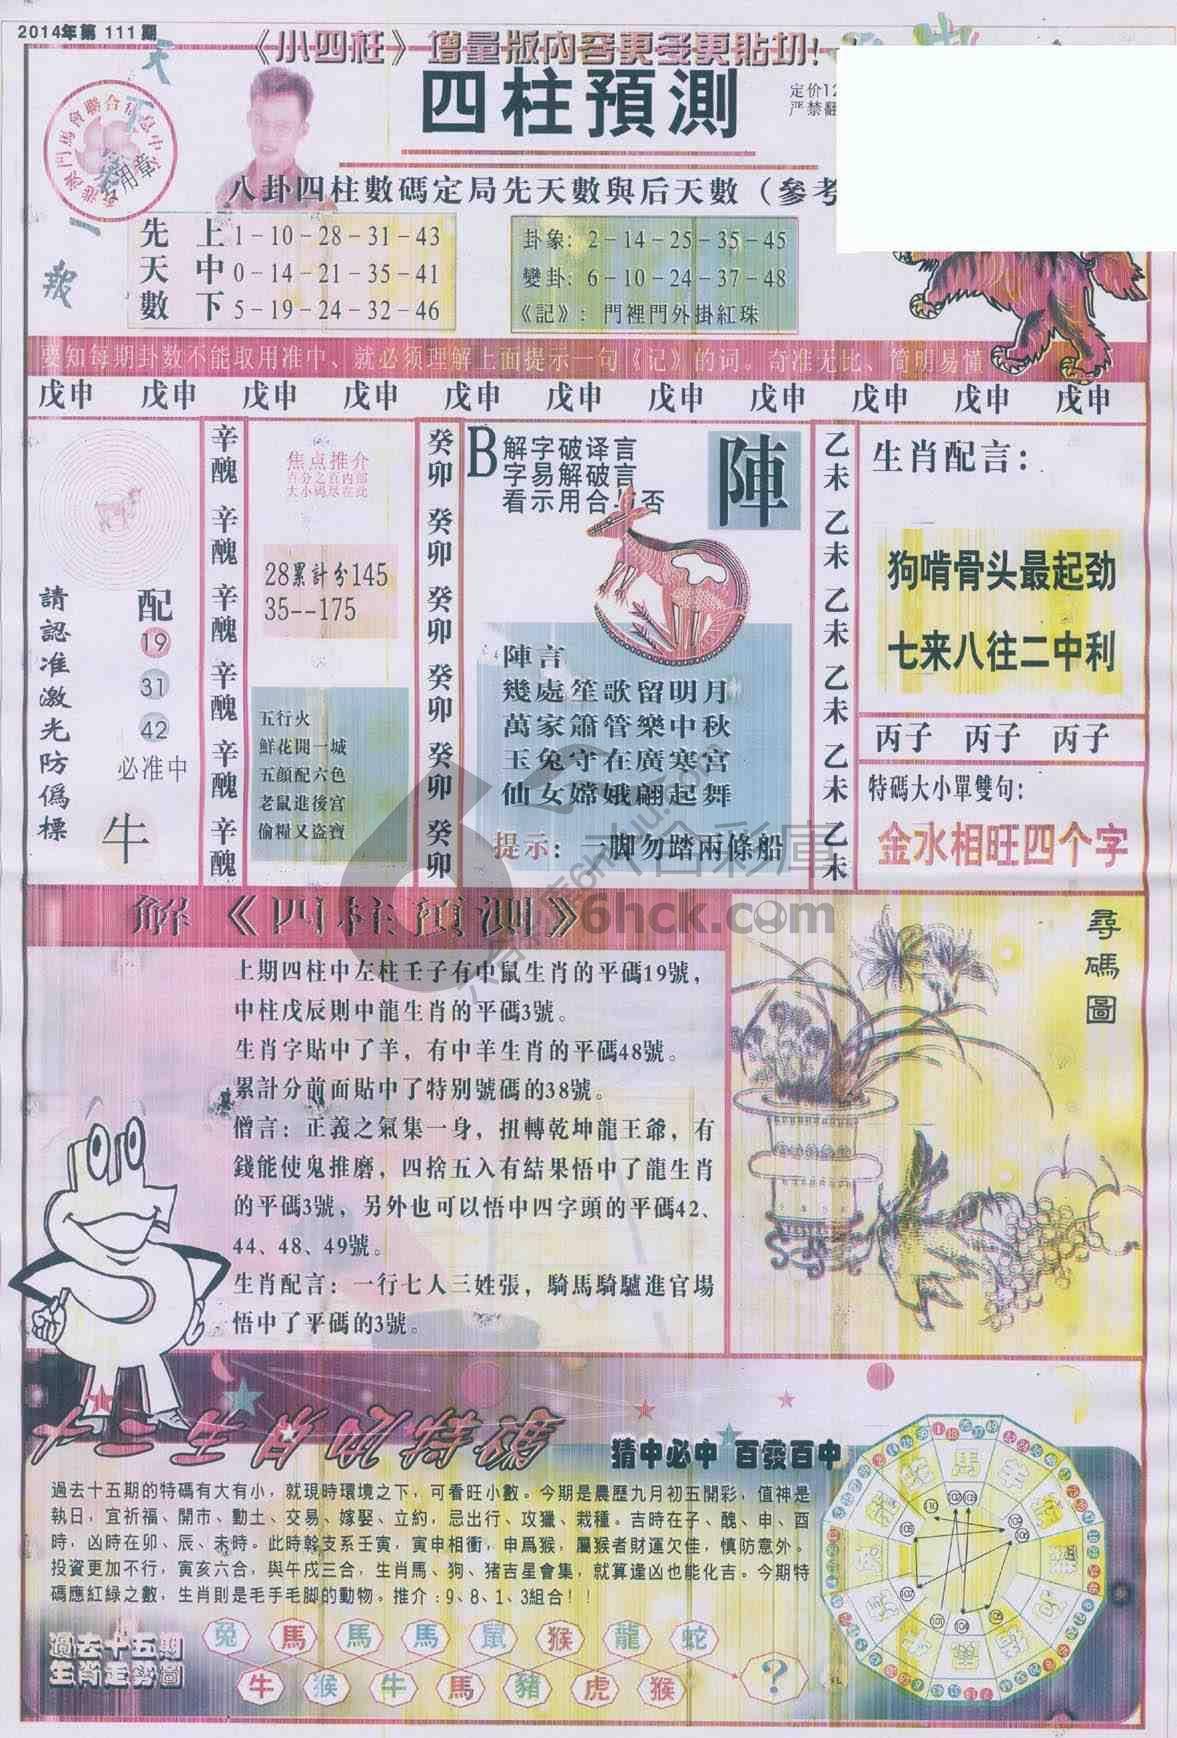 2014年第 111 期
《小四柱》增量版内容更多更貼切!
四柱預測
定价12
严禁翻
天
下
一
報
八卦四柱數碼定局先天數與后天數（參考
先天數
上 1－10－28－31－43
中 0－14－21－35－41
下 5－19－24－32－46
卦象: 2－14－25－35－45
變卦: 6－10－24－37－48
《記》: 門裡門外掛紅珠
要知每期卦数不能取用准中、就必须理解上面提示一句《记》的词。奇准无比、简明易懂
戊申 戊申 戊申 戊申 戊申 戊申 戊申 戊申 戊申 戊申 戊申
請認准激光防僞標
配
19
31
42
必准中
牛
辛醜 辛醜 辛醜 辛醜 辛醜 辛醜
焦点推介
百分之百内部
大小码尽在此
28累計分145
35--175
五行火
鮮花開一城
五顔配六色
老鼠進後宫
偷糧又盗寶
癸卯 癸卯 癸卯 癸卯 癸卯 癸卯
B
解字破译言
字易解破言
看示用合与否
陣
陣言
幾處笙歌留明月
萬家簫管樂中秋
玉兔守在廣寒宫
仙女嫦娥翩起舞
提示: 一脚勿踏兩條船
乙未 乙未 乙未 乙未 乙未 乙未
生肖配言:
狗啃骨头最起劲
七来八往二中利
丙子 丙子 丙子
特碼大小單雙句:
金水相旺四个字
六合彩庫
6hck.com
解《四柱預測》
上期四柱中左柱壬子有中鼠生肖的平碼19號，
中柱戊辰則中龍生肖的平碼3號。
生肖字貼中了羊，有中羊生肖的平碼48號。
累計分前面貼中了特别號碼的38號。
僧言: 正義之氣集一身，扭轉乾坤龍王爺，有
錢能使鬼推磨，四捨五入有結果悟中了龍生肖
的平碼3號，另外也可以悟中四字頭的平碼42、
44、48、49號。
生肖配言: 一行七人三姓張，騎馬騎驢進官場
悟中了平碼的3號。
尋碼圖
猜中必中 百發百中
過去十五期的特碼有大有小，就現時環境之下，可看旺小數。今期是農歷九月初五開彩，值神是
執日，宜祈福、開市、動土、交易、嫁娶、立約，忌出行、攻獵、栽種。吉時在子、醜、申、酉
時，凶時在卯、辰、未時。此時幹支系壬寅，寅申相衝，申爲猴，屬猴者財運欠佳，慎防意外。
投資更加不行，寅亥六合，與午戌三合，生肖馬、狗、猪吉星會集，就算逢凶也能化吉。今期特
碼應紅緑之數，生肖則是毛手毛脚的動物。推介:9、8、1、3組合！！
過去十五期
生肖走勢圖
兔 馬 馬 馬 鼠 猴 龍 蛇
牛 猴 牛 馬 豬 虎 猴 ?